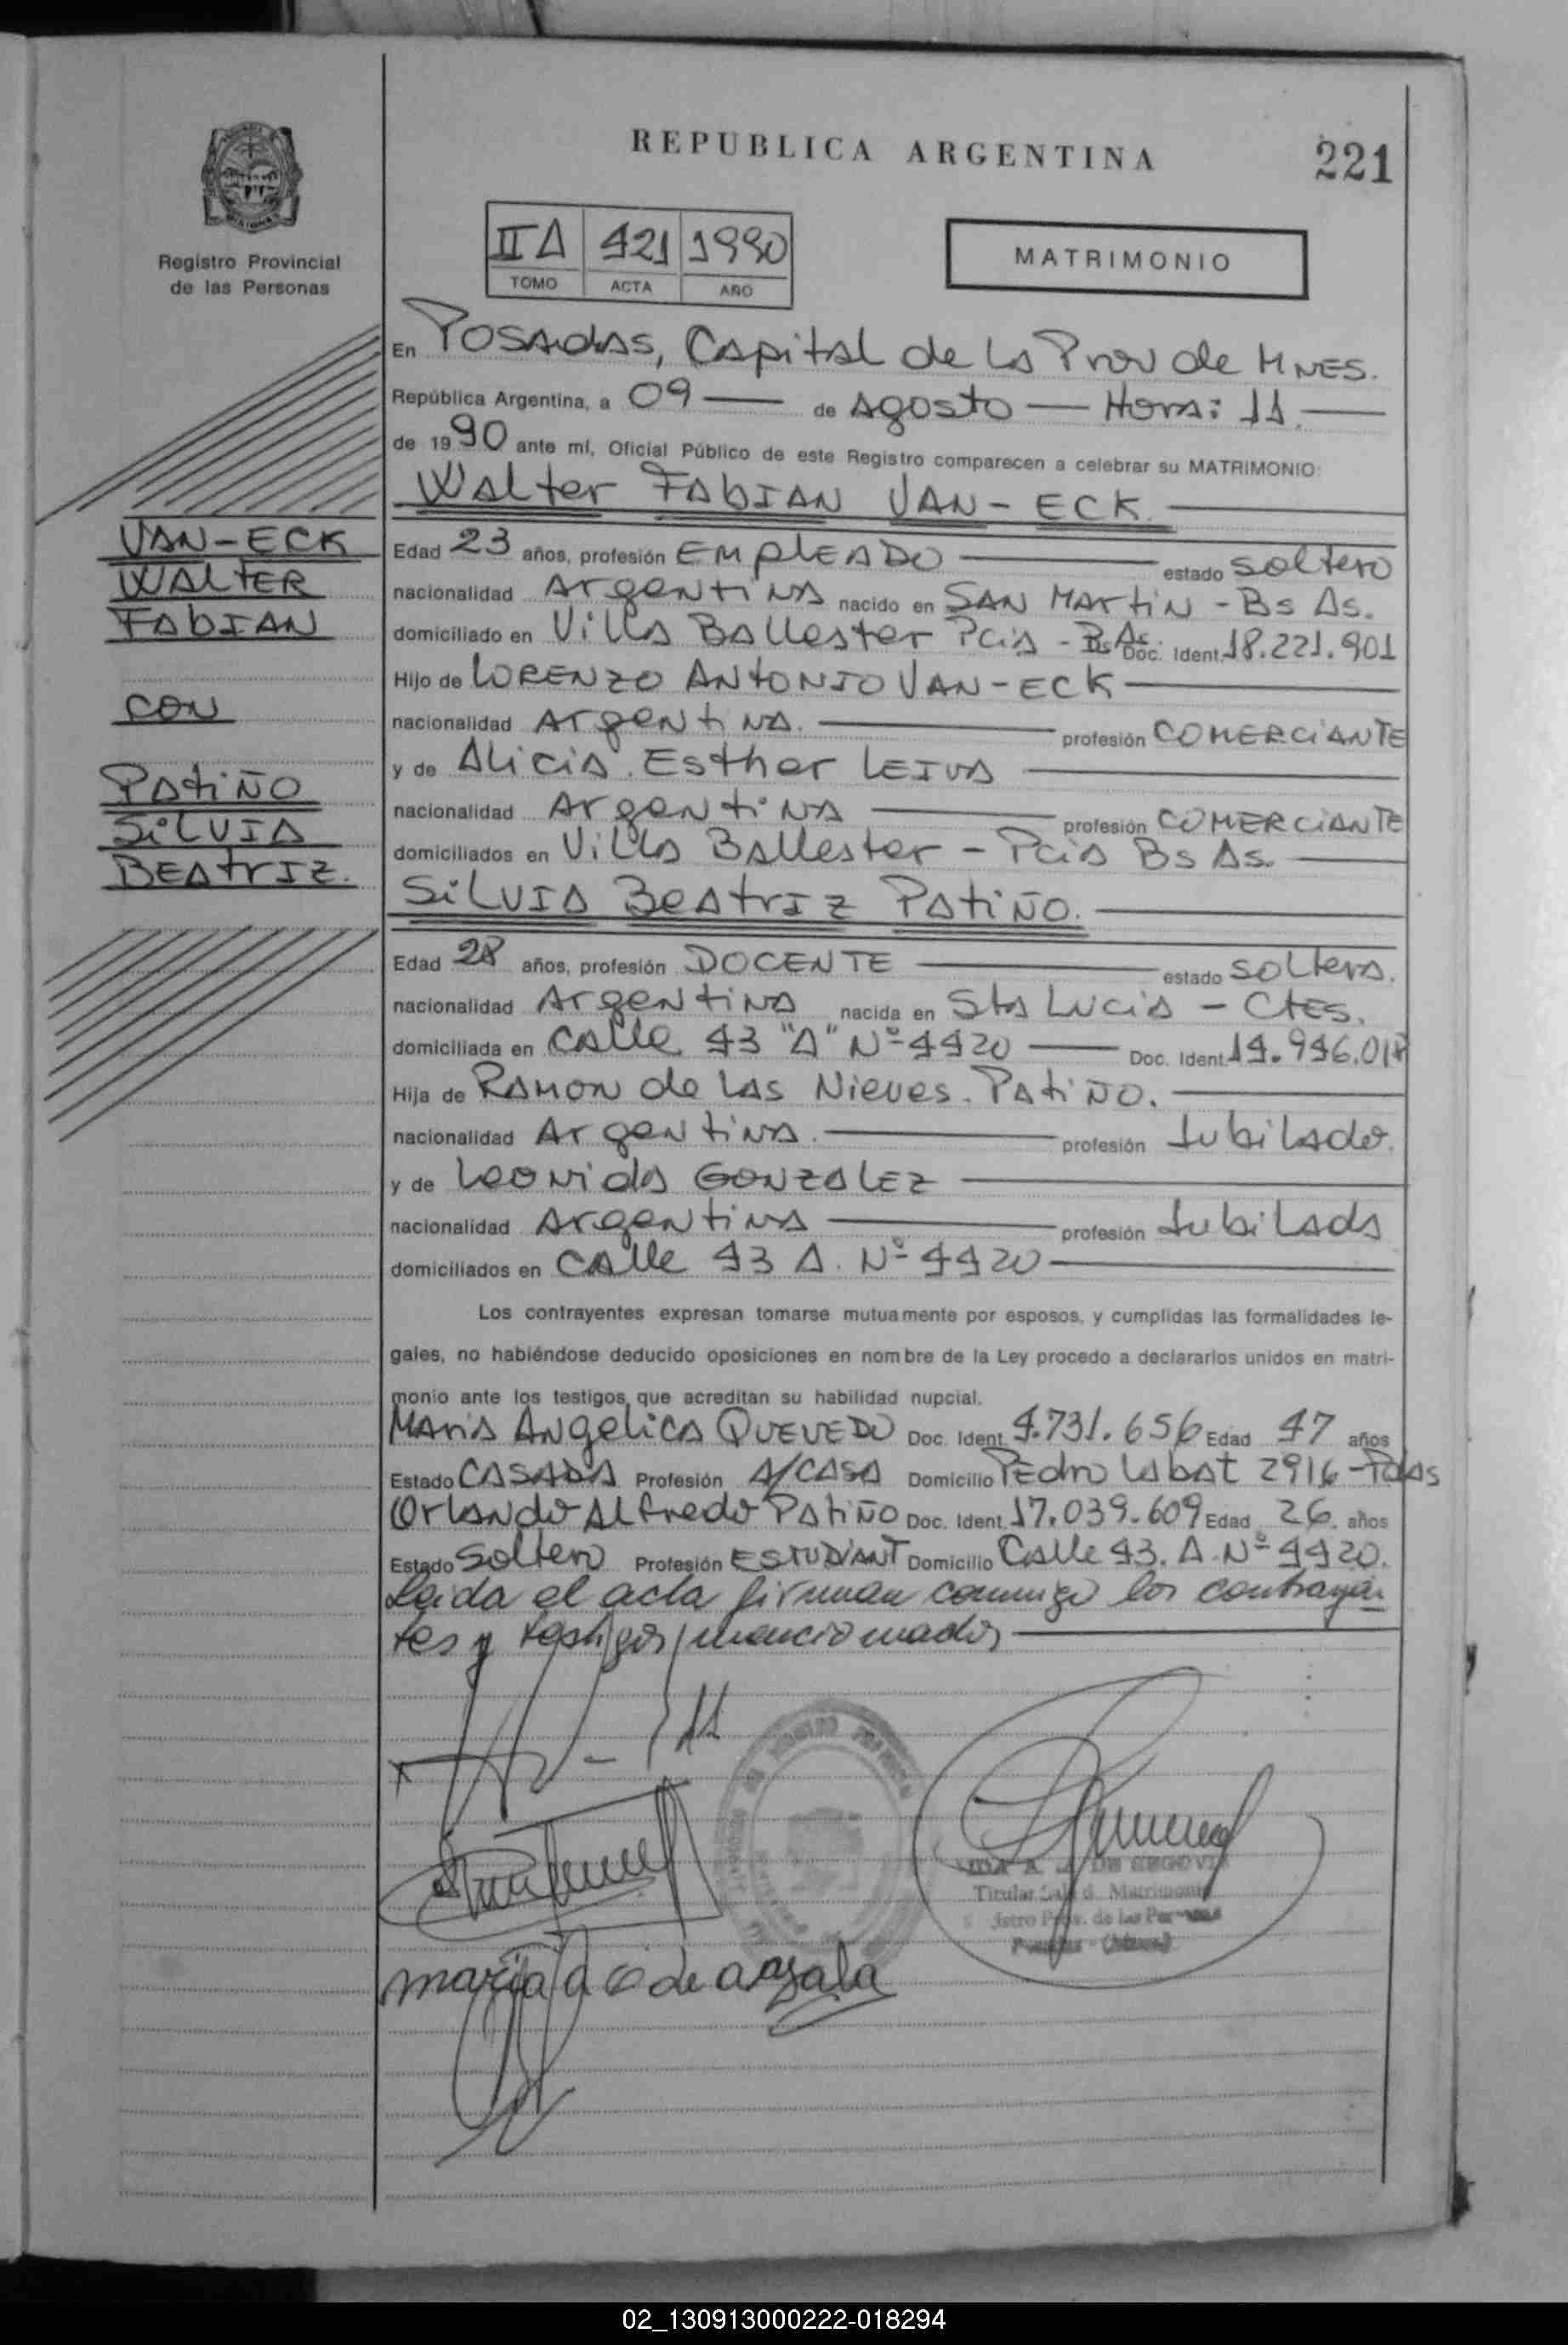 REPUBLICA ARGENTINA
221
Registro Provincial
de las Personas
IIA 421 1990
TOMO ACTA AÑO
MATRIMONIO
En Posadas, Capital de la Prov de MNES.
República Argentina, a 09 — de Agosto — Hora: 11.
de 1990 ante mí, Oficial Público de este Registro comparecen a celebrar su MATRIMONIO:
Walter FAbIAN VAN-ECK.
VAN-ECK
WALTER
FAbIAN
CON
PAtiÑO
SiLVIA
BEAtrIZ.
Edad 23 años, profesión EMplEADO estado soltero
nacionalidad Argentina nacido en SAN MArtiN - Bs As.
domiciliado en Villa Ballester Pcia - Bs As. Doc. Ident. 18.221.901
Hijo de LORENZO ANtONIO VAN-ECK
nacionalidad Argentina. profesión COMERCiANTE
y de Alicia. Esther LEIVA
nacionalidad Argentina profesión COMERCiANTE
domiciliados en Villa Ballester - Pcia Bs As.
SiLVIA BeAtrIz PAtiÑO.
Edad 28 años, profesión DOCENTE estado soltera.
nacionalidad Argentina nacida en Sta Lucia - Ctes.
domiciliada en CAlle 43 "A" Nº 4420 Doc. Ident.
Hija de RAMON de LAS Nieves. PAtiÑO.
nacionalidad Argentina. profesión Jubilado.
y de Leonida GONZALEZ
nacionalidad Argentina profesión Jubilada
domiciliados en CAlle 43 A. Nº 4420
Los contrayentes expresan tomarse mutuamente por esposos, y cumplidas las formalidades le-
gales, no habiéndose deducido oposiciones en nombre de la Ley procedo a declararlos unidos en matri-
monio ante los testigos que acreditan su habilidad nupcial.
María ANgelica QUEVEDO Doc. Ident. 4.731.656 Edad 47 años
Estado CASADA Profesión A/CASA Domicilio PEdro Labat 2916 - Pdas
OrlANdo Alfredo PAtiÑO Doc. Ident. 17.039.609 Edad 26. años
Estado Soltero Profesión ESTUDIANT Domicilio CAlle 43. A. Nº 4420.
Leida el acta firman conmigo los contrayen
tes y testigos mencionados
DE SEGOVIA
Titular Matrimonio
de las Personas
maria a de ayala
02_130913000222-018294